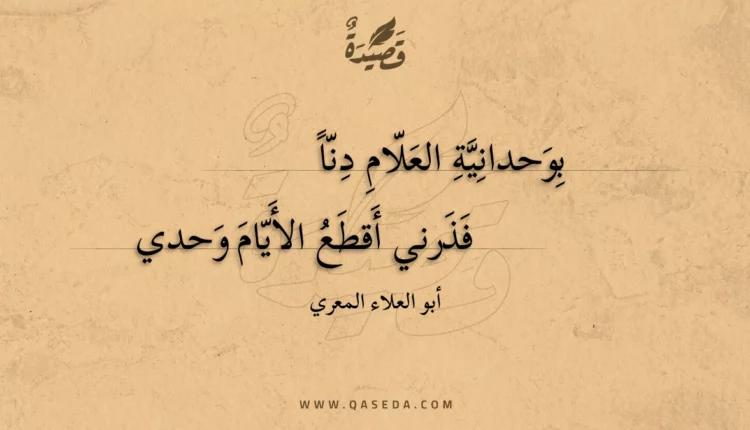 قَصِيدَةٌ
بِوَحدانِيَّةِ العَلّامِ دِنّاً
فَذَرني أَقطَعُ الأَيّامَ وَحدي
أبو العلاء المعري
WWW.QASEDA.COM